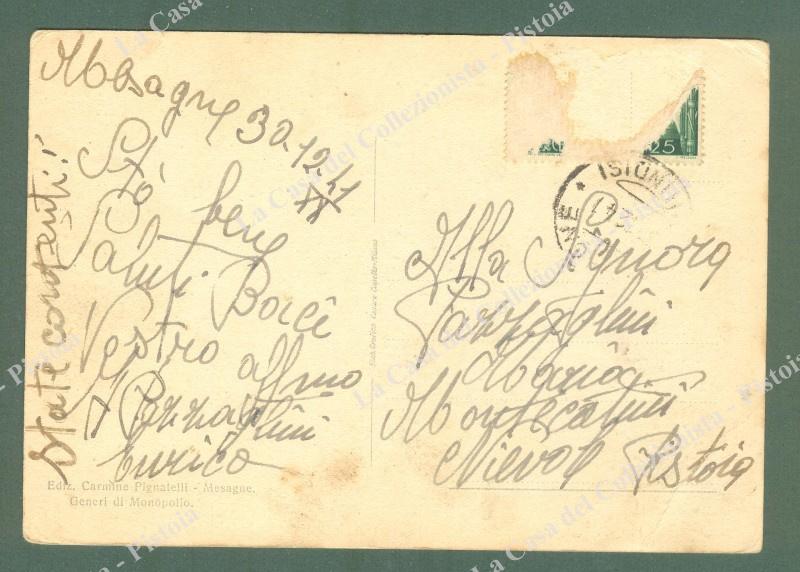 Mesagne 30.12.41
XX
Stò bene
Saluti Baci
Vostro affmo
Pazzaglini
Enrico
State contenti!
Ediz. Carmine Pignatelli - Mesagne.
Generi di Monopolio.
25
Alla Signora
Pazzaglini
Maria
Montecatini
Nievol Pistoia
La Casa del Collezionista - Pistoia